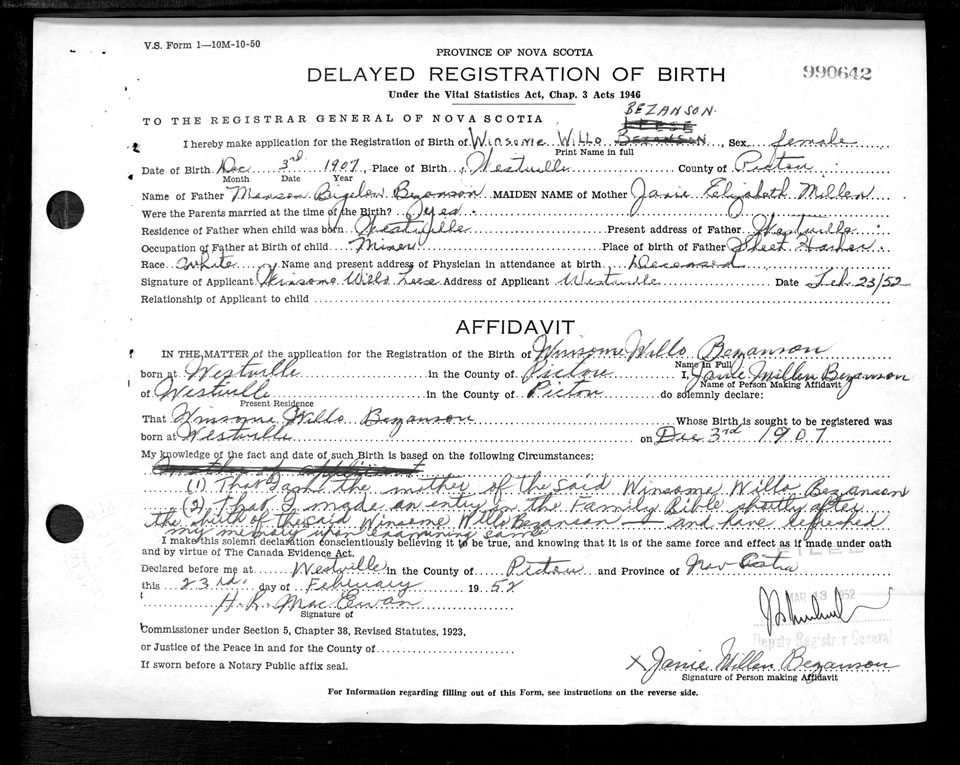 V.S. Form 1—10M-10-50
PROVINCE OF NOVA SCOTIA
DELAYED REGISTRATION OF BIRTH
990642
Under the Vital Statistics Act, Chap. 3 Acts 1946
BEZANSON.
TO THE REGISTRAR GENERAL OF NOVA SCOTIA
I hereby make application for the Registration of Birth of Winsome Willo BEZANSON, Sex female
Print Name in full
Date of Birth Dec 3rd 1907, Place of Birth Westville County of Pictou
Month Date Year
Name of Father Manson Bigelow Bezanson MAIDEN NAME of Mother Janie Elizabeth Millen
Were the Parents married at the time of the Birth? yes.
Residence of Father when child was born Westville Present address of Father Westville
Occupation of Father at Birth of child Miner Place of birth of Father Sheet Harbor
Race White Name and present address of Physician in attendance at birth Deceased
Signature of Applicant Winsome Willo Leese Address of Applicant Westville Date Feb. 23/52
Relationship of Applicant to child
AFFIDAVIT
IN THE MATTER of the application for the Registration of the Birth of Winsome Willo Bezanson
Name in Full
born at Westville in the County of Pictou I, Janie Millen Bezanson
Name of Person Making Affidavit
of Westville in the County of Pictou do solemnly declare:
Present Residence
That Winsome Willo Bezanson Whose Birth is sought to be registered was
born at Westville on Dec 3rd 1907
My knowledge of the fact and date of such Birth is based on the following Circumstances:
Mother of applicant
(1) That I am the mother of the said Winsome Willo Bezanson
(2) That I made an entry in the Family Bible shortly after
the birth of the said Winsome Willo Bezanson — and have refreshed
my memory upon examining same
I make this solemn declaration conscientiously believing it to be true, and knowing that it is of the same force and effect as if made under oath
and by virtue of The Canada Evidence Act.
FILED
Declared before me at Westville in the County of Pictou and Province of Nova Scotia
this 23rd. day of February 1952
MAR 13 1952
H. R. MacEwan
Signature of
Commissioner under Section 5, Chapter 38, Revised Statutes, 1923,
Deputy Registrar General
or Justice of the Peace in and for the County of
If sworn before a Notary Public affix seal.
X Janie Millen Bezanson
Signature of Person making Affidavit
For Information regarding filling out of this Form, see instructions on the reverse side.